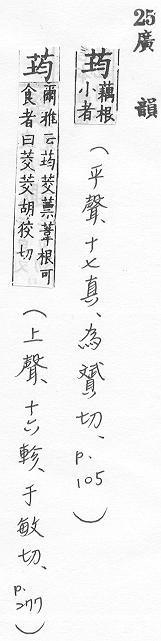 25 廣韻
荺 藕根小者（平聲、十七真、為贇切、p.105）
荺 爾雅云荺茭薰葦根可食者曰茭茭胡狡切（上聲、十六軫、于敏切、p.277）